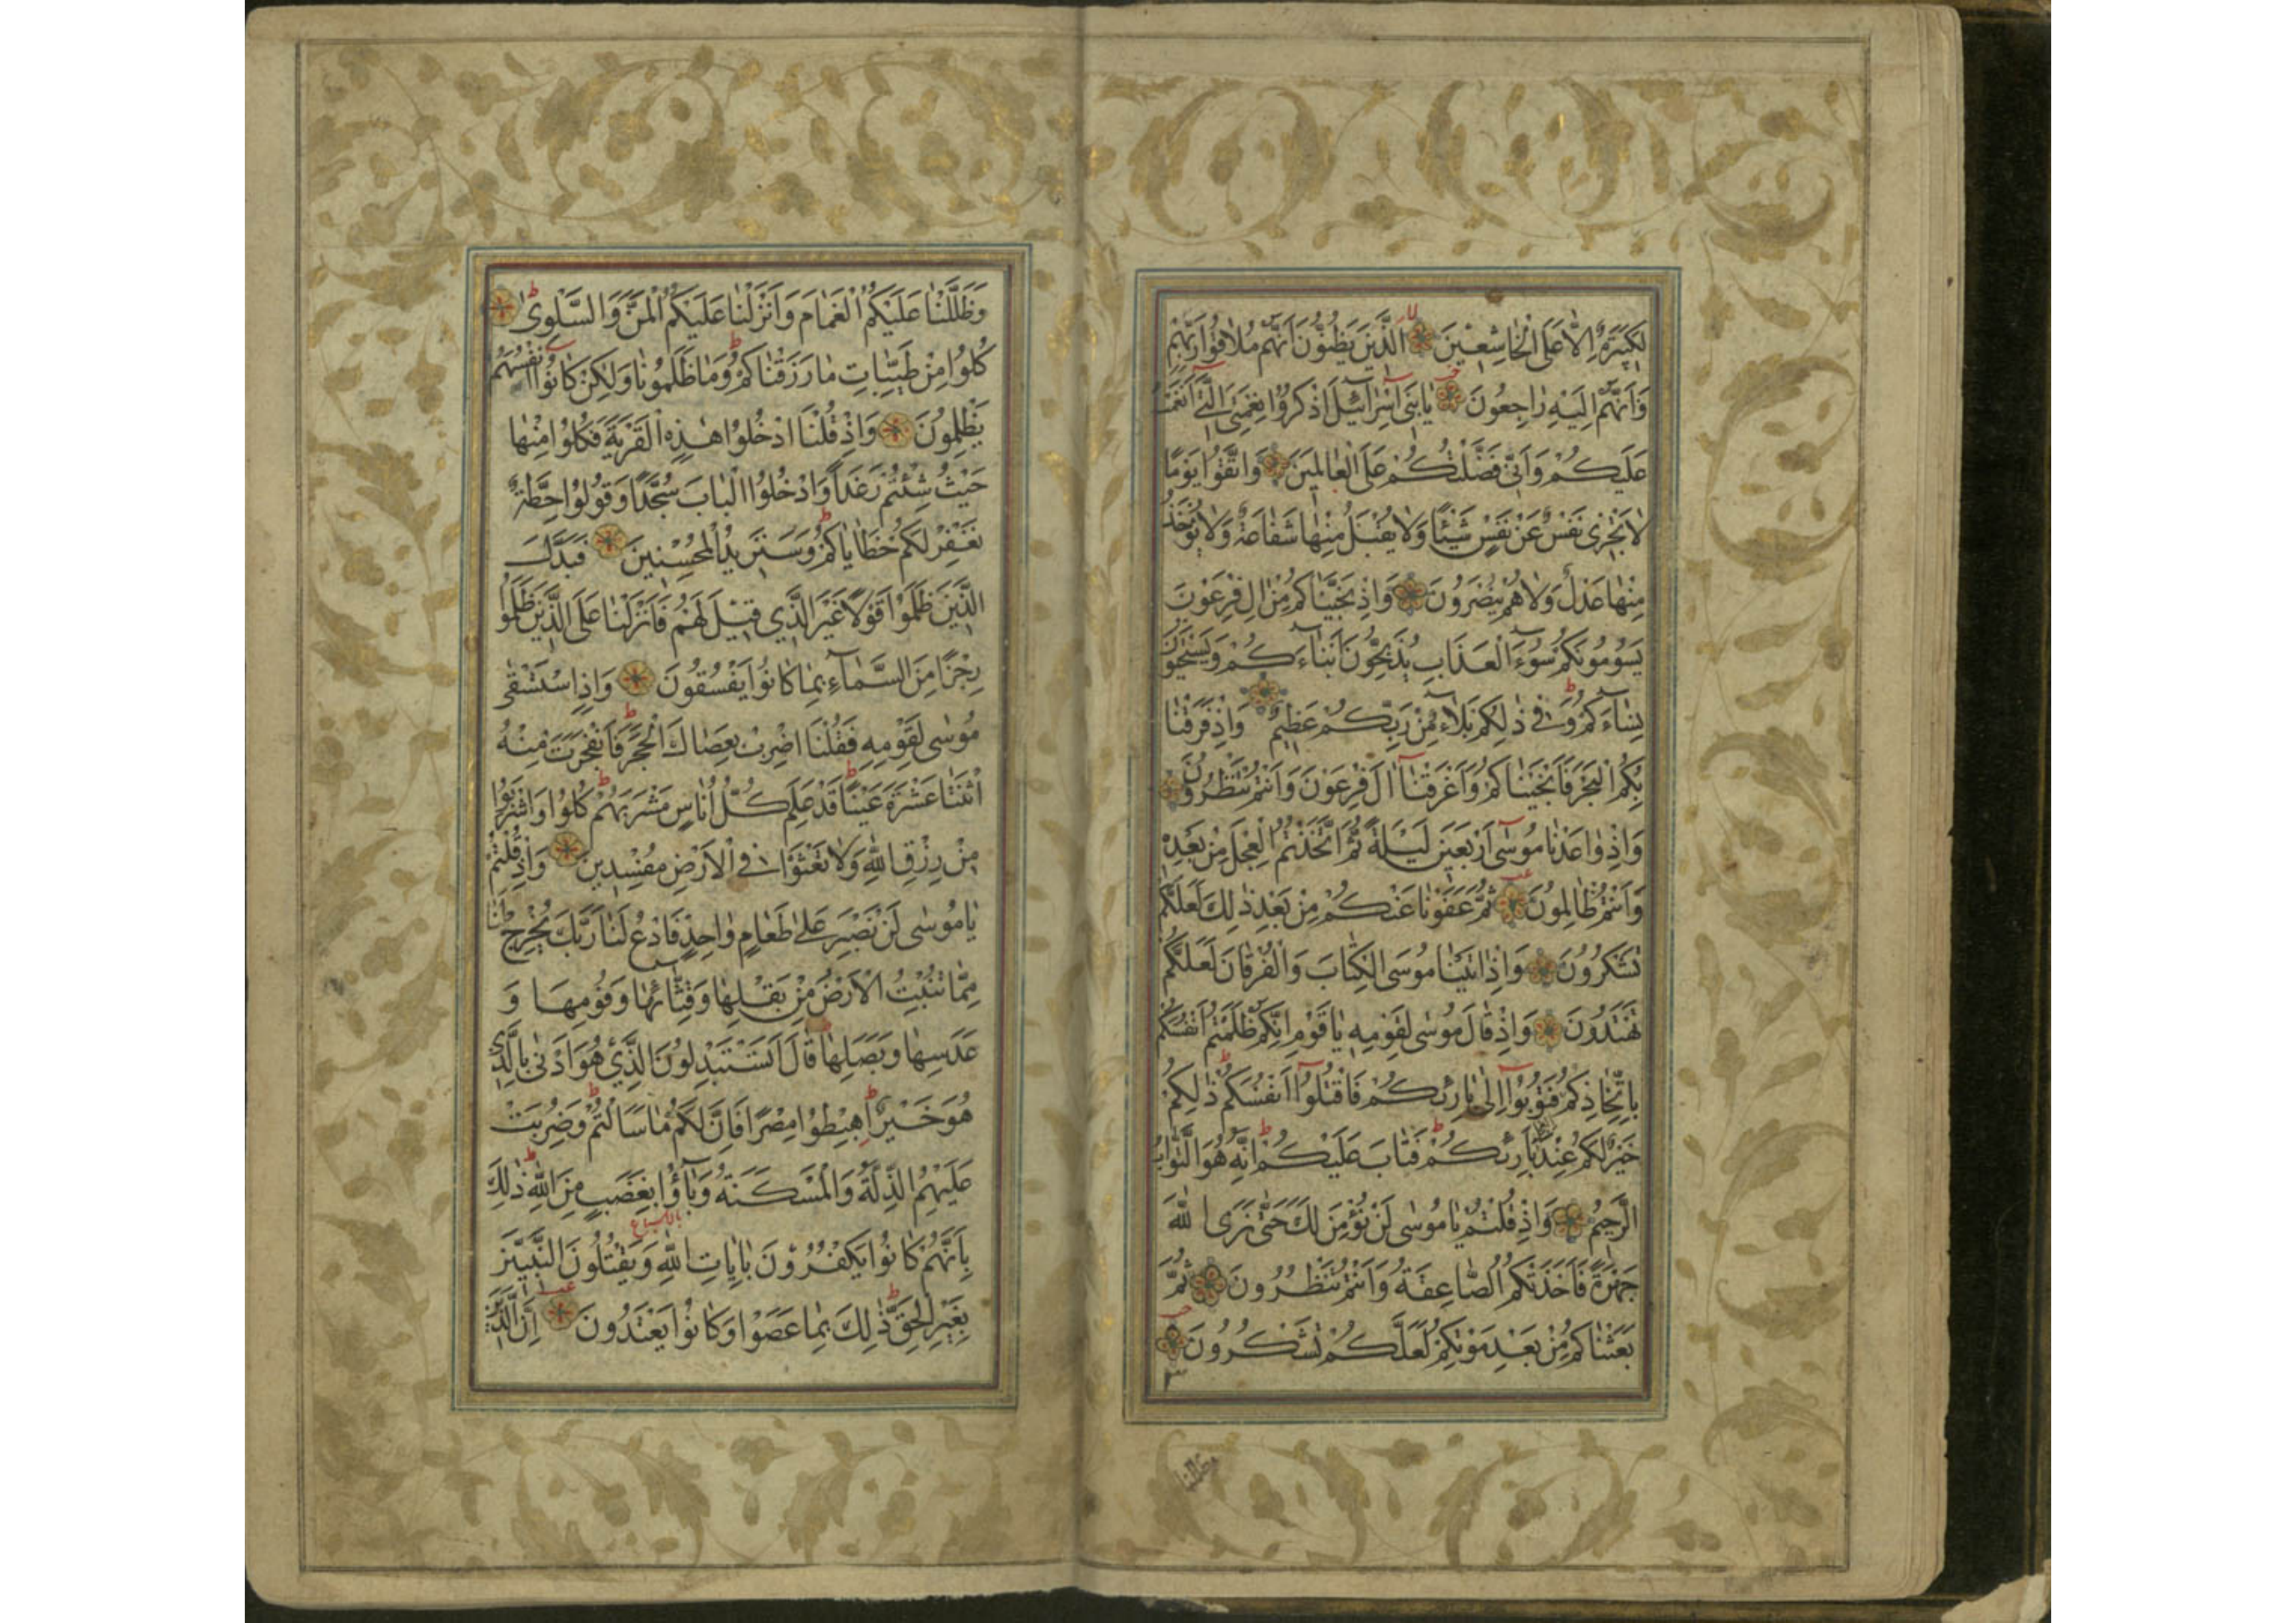 لَكَبِيرَةٌ اِلَّا عَلَى الْخَاشِعِينَ الَّذِينَ يَظُنُّونَ اَنَّهُمْ مُلَاقُوا رَبِّهِمْ
وَاَنَّهُمْ اِلَيْهِ رَاجِعُونَ يَا بَنِى اِسْرَآئِلَ اذْكُرُوا نِعْمَتِىَ الَّتِى اَنْعَمْتُ
عَلَيْكُمْ وَاَنِّى فَضَّلْتُكُمْ عَلَى الْعَالَمِينَ وَاتَّقُوا يَوْمًا
لَا تَجْزِى نَفْسٌ عَنْ نَفْسٍ شَيْئًا وَلَا يُقْبَلُ مِنْهَا شَفَاعَةٌ وَلَا يُؤْخَذُ
مِنْهَا عَدْلٌ وَلَا هُمْ يُنْصَرُونَ وَاِذْ نَجَّيْنَاكُمْ مِنْ اٰلِ فِرْعَوْنَ
يَسُومُونَكُمْ سُوٓءَ الْعَذَابِ يُذَبِّحُونَ اَبْنَآءَكُمْ وَيَسْتَحْيُونَ
نِسَآءَكُمْ وَفِى ذٰلِكُمْ بَلَآءٌ مِنْ رَبِّكُمْ عَظِيمٌ وَاِذْ فَرَقْنَا
بِكُمُ الْبَحْرَ فَاَنْجَيْنَاكُمْ وَاَغْرَقْنَآ اٰلَ فِرْعَوْنَ وَاَنْتُمْ تَنْظُرُونَ
وَاِذْ وَاعَدْنَا مُوسٰٓى اَرْبَعِينَ لَيْلَةً ثُمَّ اتَّخَذْتُمُ الْعِجْلَ مِنْ بَعْدِهِ
وَاَنْتُمْ ظَالِمُونَ ثُمَّ عَفَوْنَا عَنْكُمْ مِنْ بَعْدِ ذٰلِكَ لَعَلَّكُمْ
تَشْكُرُونَ وَاِذْ اٰتَيْنَا مُوسَى الْكِتَابَ وَالْفُرْقَانَ لَعَلَّكُمْ
تَهْتَدُونَ وَاِذْ قَالَ مُوسٰى لِقَوْمِهِ يَا قَوْمِ اِنَّكُمْ ظَلَمْتُمْ اَنْفُسَكُمْ
بِاتِّخَاذِكُمُ فَتُوبُوٓا اِلٰى بَارِئِكُمْ فَاقْتُلُوٓا اَنْفُسَكُمْ ذٰلِكُمْ
خَيْرٌ لَكُمْ عِنْدَ بَارِئِكُمْ فَتَابَ عَلَيْكُمْ اِنَّهُ هُوَ التَّوَّابُ
الرَّحِيمُ وَاِذْ قُلْتُمْ يَا مُوسٰى لَنْ نُؤْمِنَ لَكَ حَتّٰى نَرَى اللّٰهَ
جَهْرَةً فَاَخَذَتْكُمُ الصَّاعِقَةُ وَاَنْتُمْ تَنْظُرُونَ ثُمَّ
بَعَثْنَاكُمْ مِنْ بَعْدِ مَوْتِكُمْ لَعَلَّكُمْ تَشْكُرُونَ
وظللنا
وَظَلَّلْنَا عَلَيْكُمُ الْغَمَامَ وَاَنْزَلْنَا عَلَيْكُمُ الْمَنَّ وَالسَّلْوٰى
كُلُوا مِنْ طَيِّبَاتِ مَا رَزَقْنَاكُمْ وَمَا ظَلَمُونَا وَلٰكِنْ كَانُوٓا اَنْفُسَهُمْ
يَظْلِمُونَ وَاِذْ قُلْنَا ادْخُلُوا هٰذِهِ الْقَرْيَةَ فَكُلُوا مِنْهَا
حَيْثُ شِئْتُمْ رَغَدًا وَادْخُلُوا الْبَابَ سُجَّدًا وَقُولُوا حِطَّةٌ
نَغْفِرْ لَكُمْ خَطَايَاكُمْ وَسَنَزِيدُ الْمُحْسِنِينَ فَبَدَّلَ
الَّذِينَ ظَلَمُوا قَوْلًا غَيْرَ الَّذِي قِيلَ لَهُمْ فَاَنْزَلْنَا عَلَى الَّذِينَ ظَلَمُوا
رِجْزًا مِنَ السَّمَآءِ بِمَا كَانُوا يَفْسُقُونَ وَاِذِ اسْتَسْقٰى
مُوسٰى لِقَوْمِهِ فَقُلْنَا اضْرِبْ بِعَصَاكَ الْحَجَرَ فَانْفَجَرَتْ مِنْهُ
اثْنَتَا عَشْرَةَ عَيْنًا قَدْ عَلِمَ كُلُّ اُنَاسٍ مَشْرَبَهُمْ كُلُوا وَاشْرَبُوا
مِنْ رِزْقِ اللّٰهِ وَلَا تَعْثَوْا فِى الْاَرْضِ مُفْسِدِينَ وَاِذْ قُلْتُمْ
يَا مُوسٰى لَنْ نَصْبِرَ عَلٰى طَعَامٍ وَاحِدٍ فَادْعُ لَنَا رَبَّكَ يُخْرِجْ لَنَا
مِمَّا تُنْبِتُ الْاَرْضُ مِنْ بَقْلِهَا وَقِثَّائِهَا وَفُومِهَا وَ
عَدَسِهَا وَبَصَلِهَا قَالَ اَتَسْتَبْدِلُونَ الَّذِي هُوَ اَدْنٰى بِالَّذِي
هُوَ خَيْرٌ اِهْبِطُوا مِصْرًا فَاِنَّ لَكُمْ مَا سَاَلْتُمْ وَضُرِبَتْ
عَلَيْهِمُ الذِّلَّةُ وَالْمَسْكَنَةُ وَبَآؤُا بِغَضَبٍ مِنَ اللّٰهِ ذٰلِكَ
بِاَنَّهُمْ كَانُوا يَكْفُرُونَ بِاٰيَاتِ اللّٰهِ وَيَقْتُلُونَ النَّبِيِّينَ
بِغَيْرِ الْحَقِّ ذٰلِكَ بِمَا عَصَوْا وَكَانُوا يَعْتَدُونَ اِنَّ الَّذِينَ